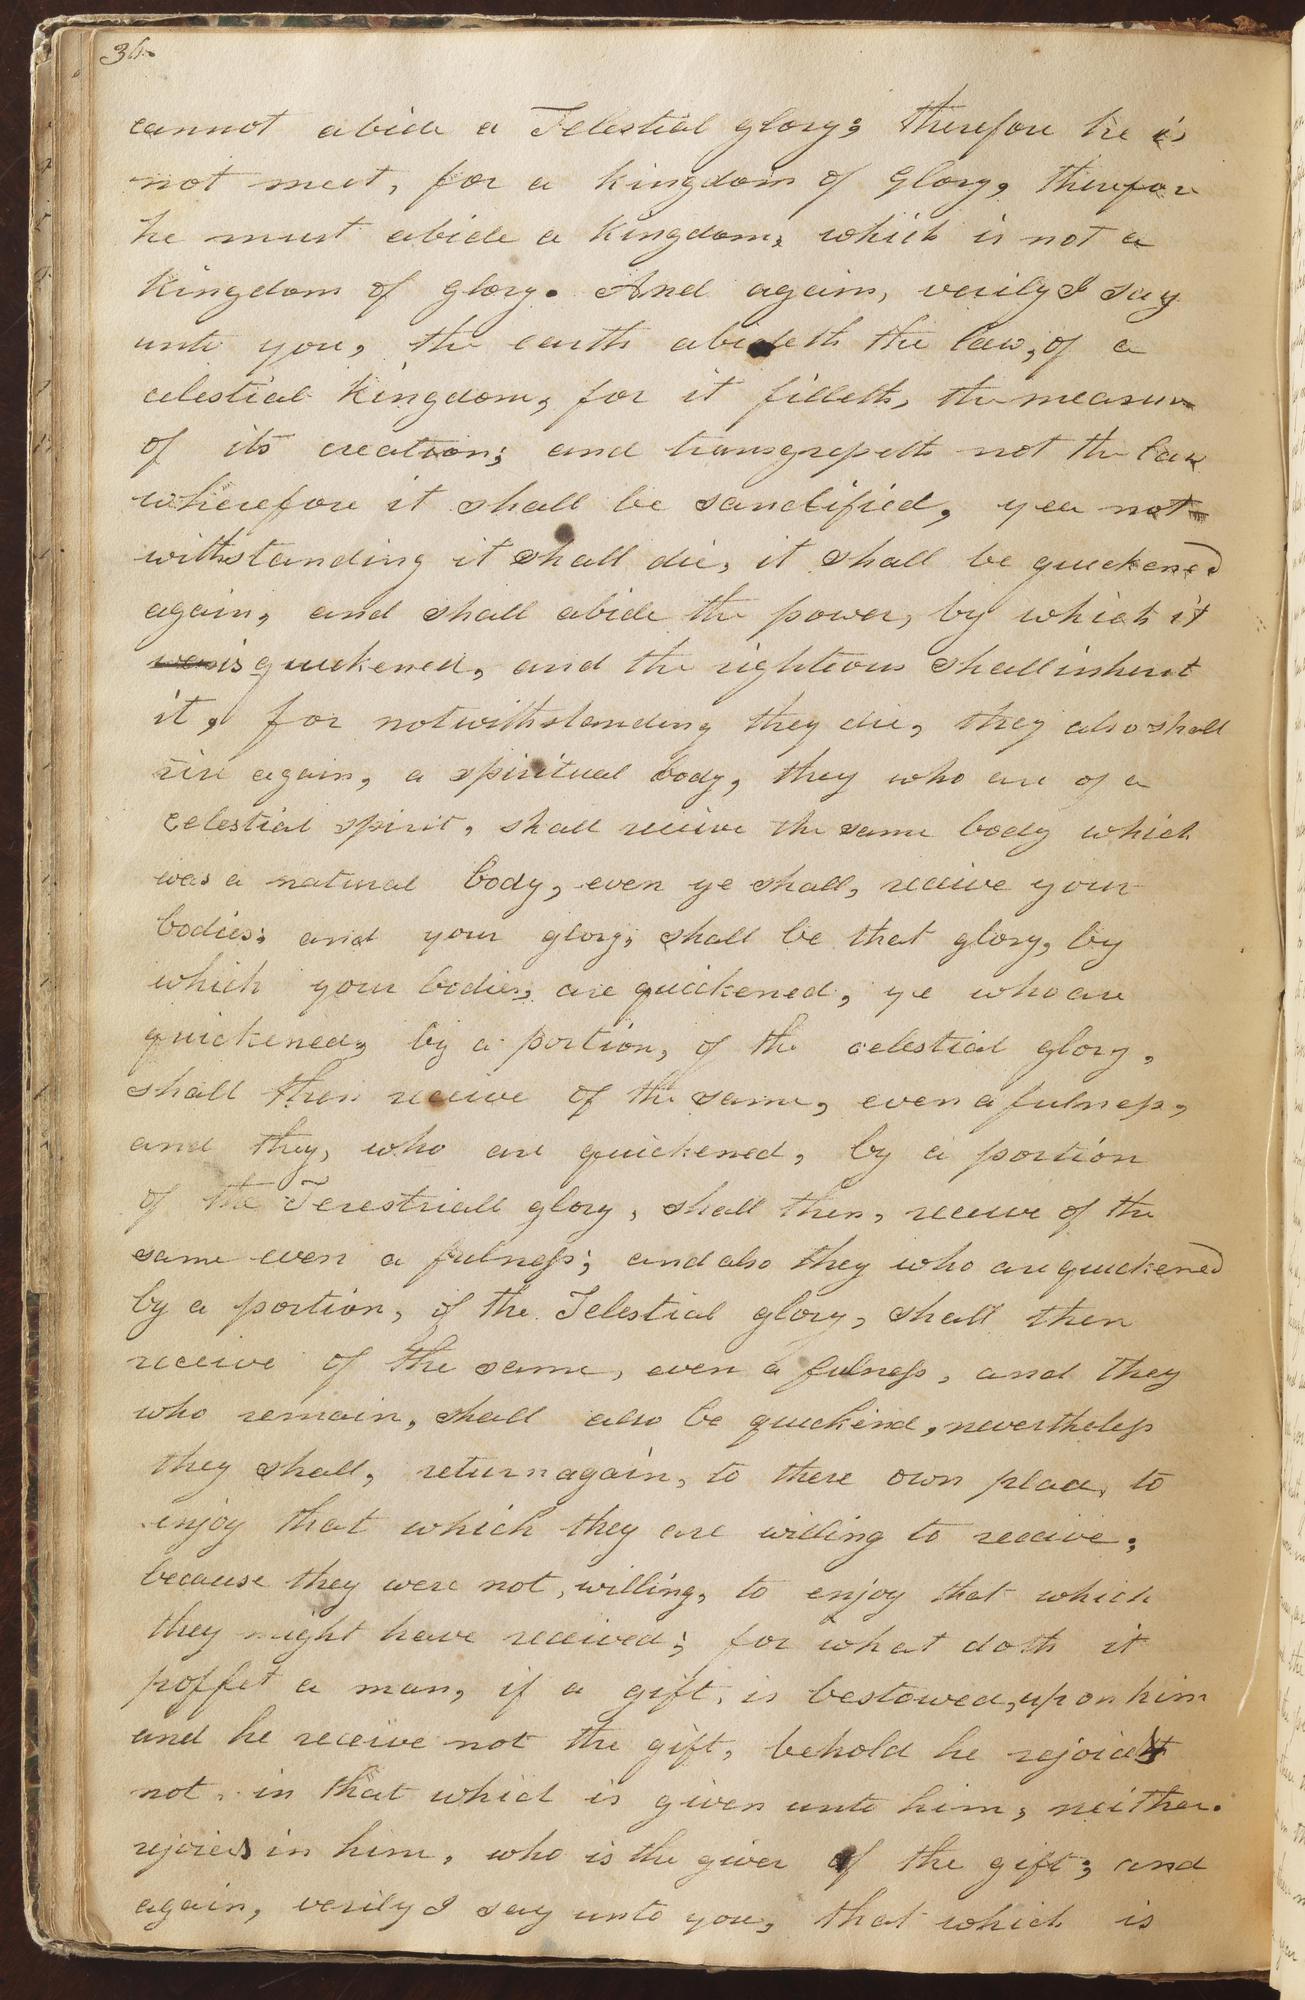 36
cannot abide a Telestial glory; therefore he is
not meet, for a kingdom of glory, therefore
he must abide a kingdom, which is not a
kingdom of glory. And again, verily I say
unto you, the earth abideth the law, of a
celestial kingdom, for it filleth, the measure
of its creation; and transgresseth not the law
wherefore it shall be sanctified, yea not-
withstanding it shall die, it shall be quickened
again, and shall abide the power, by which it
is quickened, and the righteous shall inherit
it, for notwithstanding they die, they also shall
rise again, a spiritual body, they who are of a
celestial spirit, shall receive the same body which
was a natural body, even ye shall, receive your
bodies; and your glory; shall be that glory, by
which your bodies, are quickened, ye who are
quickened, by a portion, of the celestial glory,
shall then receive of the same, even a fulness,
and they, who are quickened, by a portion
of the Terestriall glory, shall then, receive of the
same even a fulness; and also they who are quickened
by a portion, of the Telestial glory, shall then
receive of the same, even a fulness, and they
who remain, shall also be quickend, nevertheless
they shall, return again, to there own place, to
enjoy that which they are willing to receive;
because they were not, willing, to enjoy that which
they might have received; for what doth it
proffet a man, if a gift, is bestowed, upon him
and he receive not the gift, behold he rejoices
not, in that which is given unto him, neither
rejoices in him, who is the giver of the gift; and
again, verily I say unto you, that which is